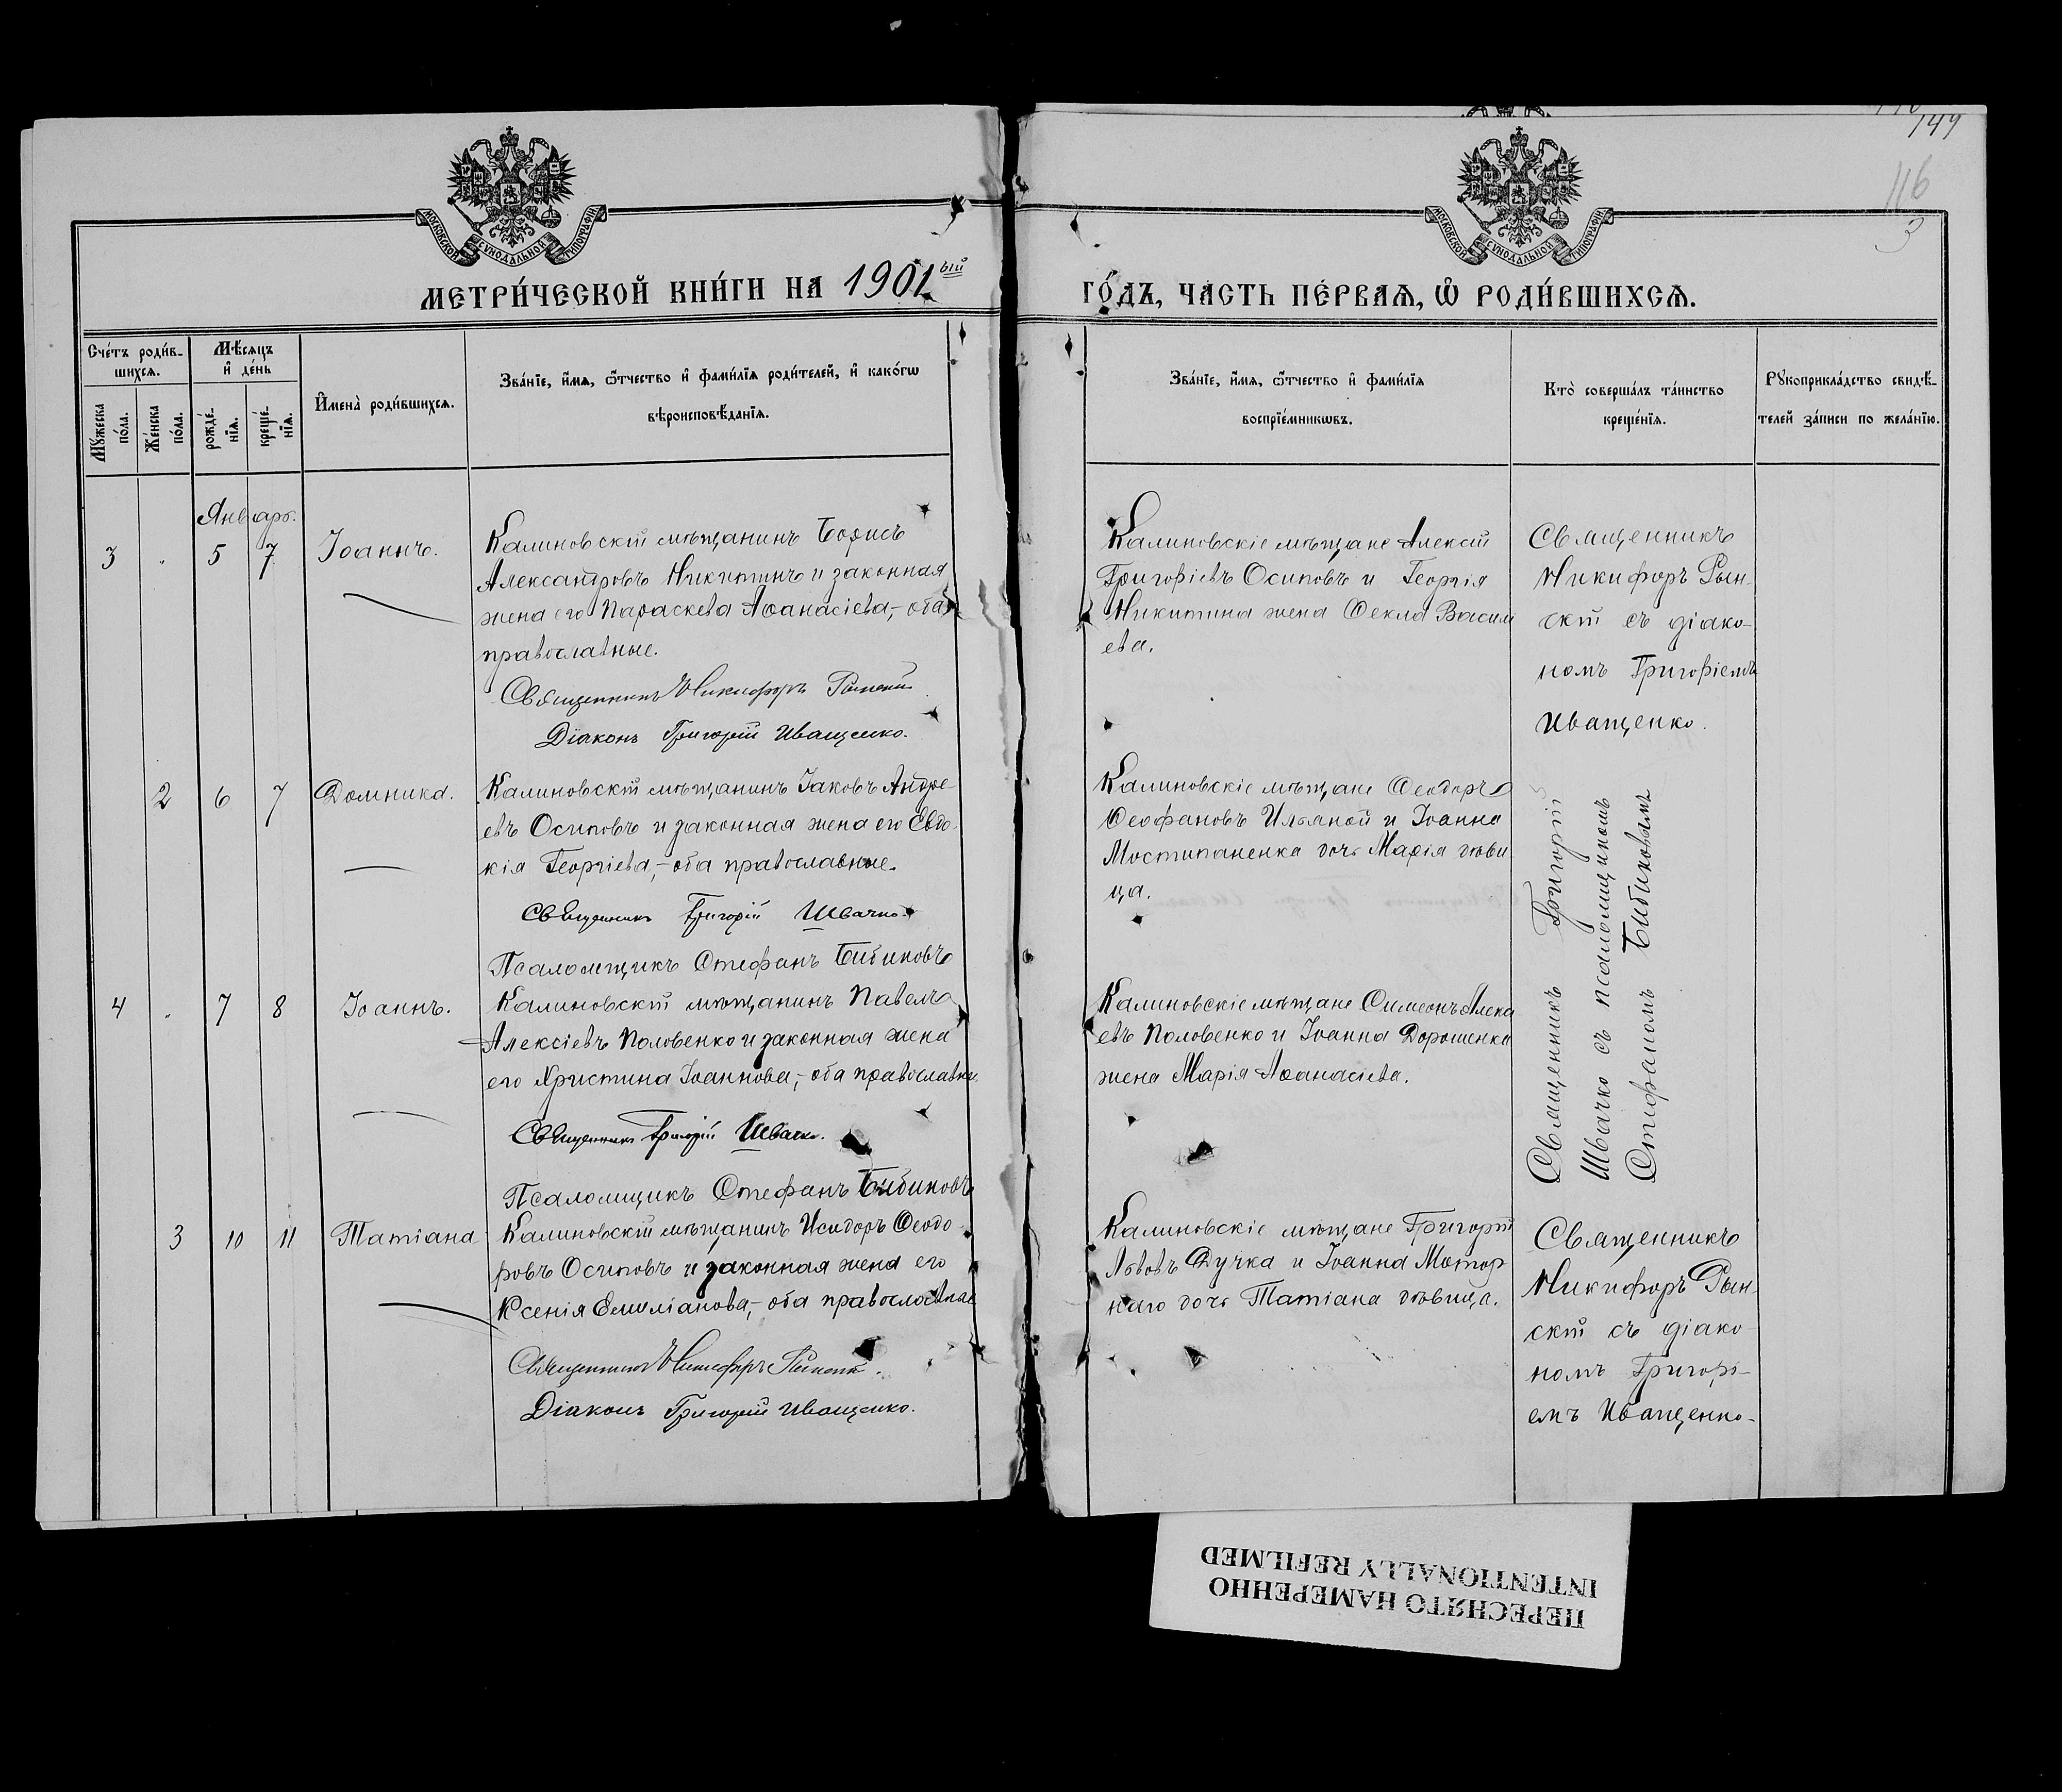 149
116
3
МОСКОВСКОЙ СѴНОДАЛЬНОЙ ТИПОГРАФІИ
МОСКОВСКОЙ СѴНОДАЛЬНОЙ ТИПОГРАФІИ
МЕТРИ́ЧЕСКОЙ КНИ́ГИ НА 1901ый
ГО́ДЪ, ЧА́СТЬ ПЕ́РВАѦ, Ѽ РОДИ́ВШИХСѦ.
Сче́тъ роди́в-
шихсѧ.
Мꙋ́жеска
по́ла.
Же́нска
по́ла.
Мѣ́сѧцъ
и҆ де́нь
рожде́-
нїѧ.
креще́-
нїѧ.
И҆мена̀ роди́вшихсѧ.
Зва́нїе, и҆́мѧ, ѻ҆́тчество и҆ фами́лїѧ роди́телей, и҆ како́гѡ
вѣроисповѣ́данїѧ.
Зва́нїе, и҆́мѧ, ѻ҆́тчество и҆ фами́лїѧ
воспрїе́мникѡвъ.
Кто̀ соверша́лъ та́инство
креще́нїѧ.
Рꙋкоприкла́дство свидѣ́-
телей за́писи по жела́нїю.
Январь.
3 „ 5 7 Іоаннъ.
Калиновскій мѣщанинъ Борисъ
Александровъ Никитинъ и законная
жена его Параскева Аѳанасіева,- оба
православные.
Священникъ Никифоръ Рынскій
Діаконъ Григорій Иващенко.
Калиновскіе мѣщане Алексій
Григоріевъ Осиповъ и Георгія
Никитина жена Ѳекла Васили
ева.
Священникъ
Никифоръ Рын-
скій съ діако-
номъ Григоріемъ
Иващенко.
2 6 7 Домника.
Калиновскій мѣщанинъ Іаковъ Андре-
евъ Осиповъ и законная жена его Евдо-
кія Георгіева,- оба православные.
Священникъ Григорій Швачко.
Псаломщикъ Стефанъ Бибиковъ
Калиновскіе мѣщане Ѳеодоръ
Ѳеофановъ Ильяной и Іоанна
Мостипаненка дочь Марія дѣви
ца.
Священникъ Григорій
Швачко съ псаломщикомъ
Стефаномъ Бибиковымъ
4 „ 7 8 Іоаннъ.
Калиновскій мѣщанинъ Павелъ
Алексіевъ Половенко и законная жена
его Христина Іоаннова,- оба православны
Священникъ Григорій Швачко.
Псаломщикъ Стефанъ Бибиковъ
Калиновскіе мѣщане Симеонъ Алекс
евъ Половенко и Іоанна Дорошенка
жена Марія Аѳанасіева.
3 10 11 Татіана
Калиновскій мѣщанинъ Исидоръ Ѳеодо-
ровъ Осиповъ и законная жена его
Ксенія Емиліанова,- оба православные
Священникъ Никифоръ Рынскій.
Діаконъ Григорій Иващенко.
Калиновскіе мѣщане Григорій
Львовъ Дучка и Іоанна Мотор
наго дочь Татіана дѣвица.
Священникъ
Никифоръ Рын-
скій съ діако-
номъ Григорі-
емъ Иващенко-
ПЕРЕСНЯТО НАМЕРЕННО
INTENTIONALLY REFILMED